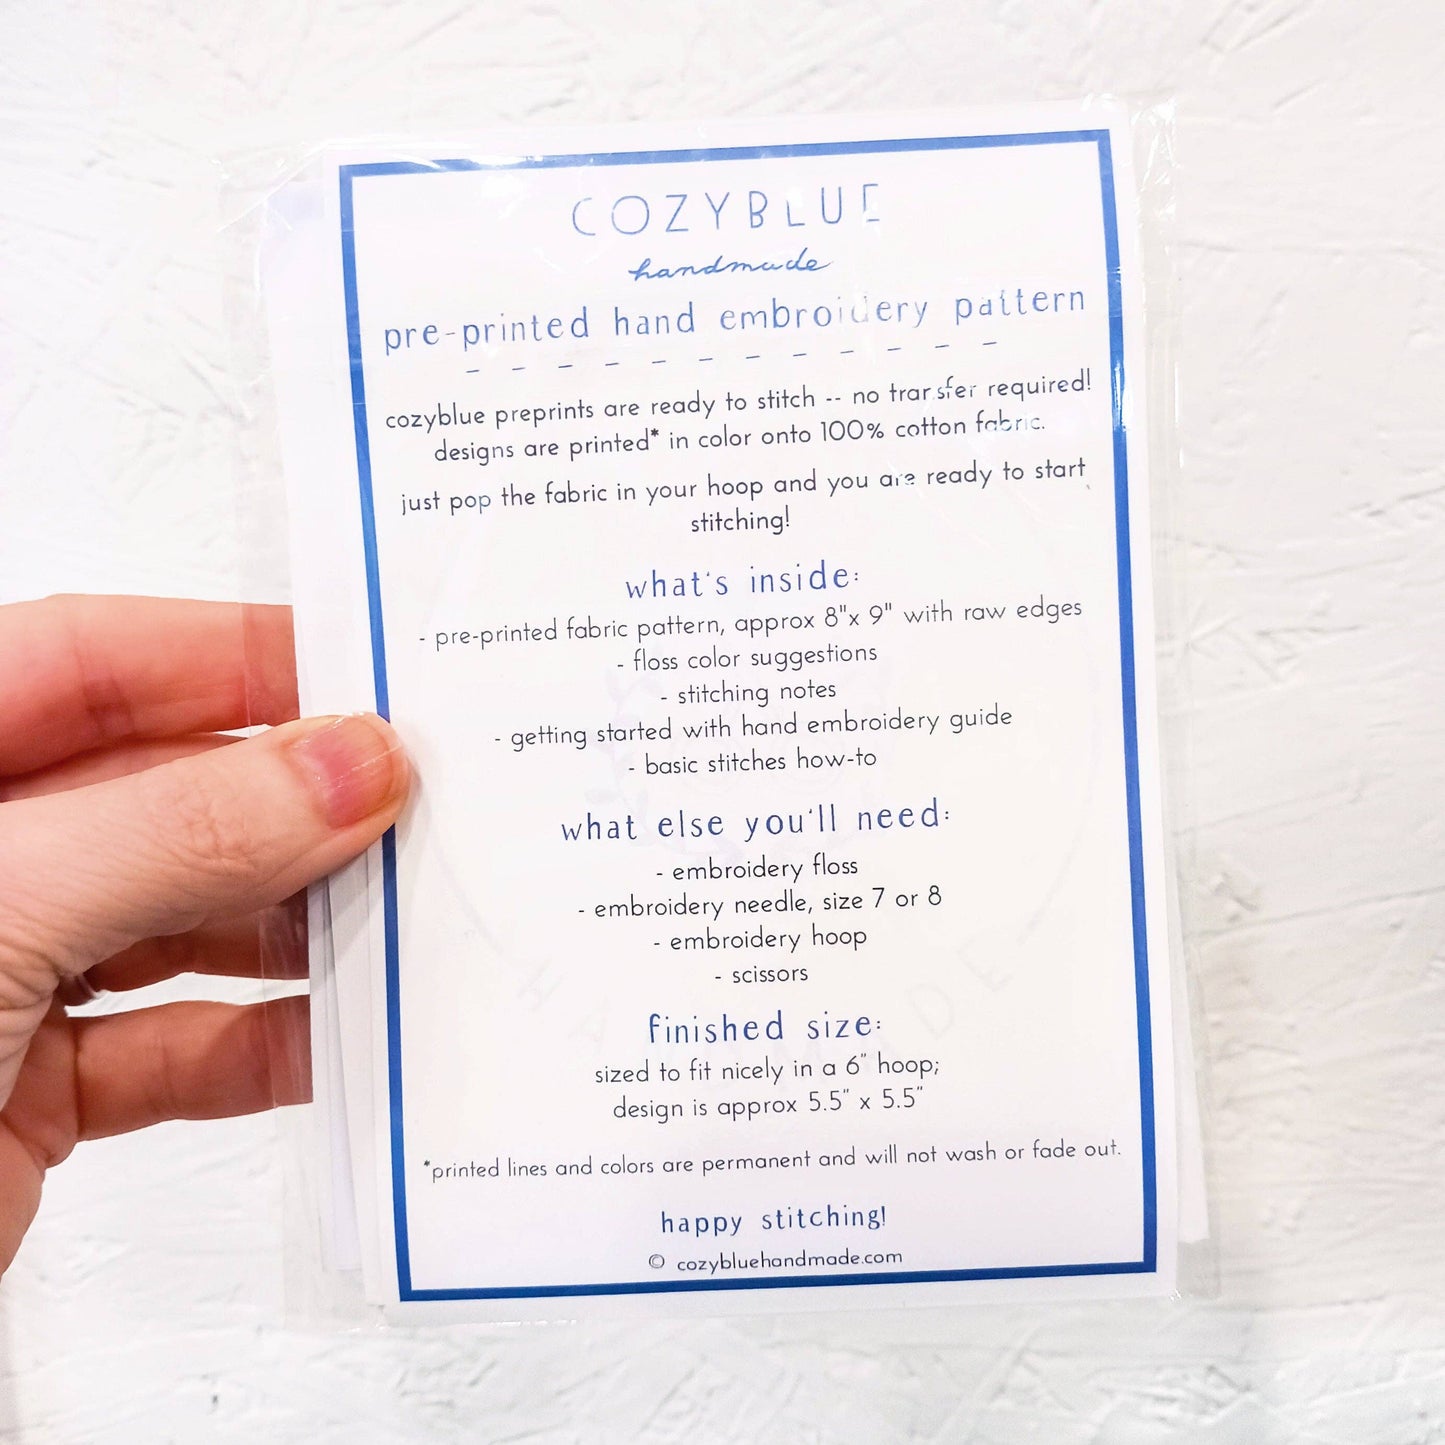 COZYBLUE
handmade
pre-printed hand embroidery pattern
- - - - - - - - - - - -
cozyblue preprints are ready to stitch -- no transfer required!
designs are printed* in color onto 100% cotton fabric.
just pop the fabric in your hoop and you are ready to start
stitching!
what's inside:
- pre-printed fabric pattern, approx 8"x 9" with raw edges
- floss color suggestions
- stitching notes
- getting started with hand embroidery guide
- basic stitches how-to
what else you'll need:
- embroidery floss
- embroidery needle, size 7 or 8
- embroidery hoop
- scissors
finished size:
sized to fit nicely in a 6" hoop;
design is approx 5.5" x 5.5"
*printed lines and colors are permanent and will not wash or fade out.
happy stitching!
© cozybluehandmade.com
HANDMADE